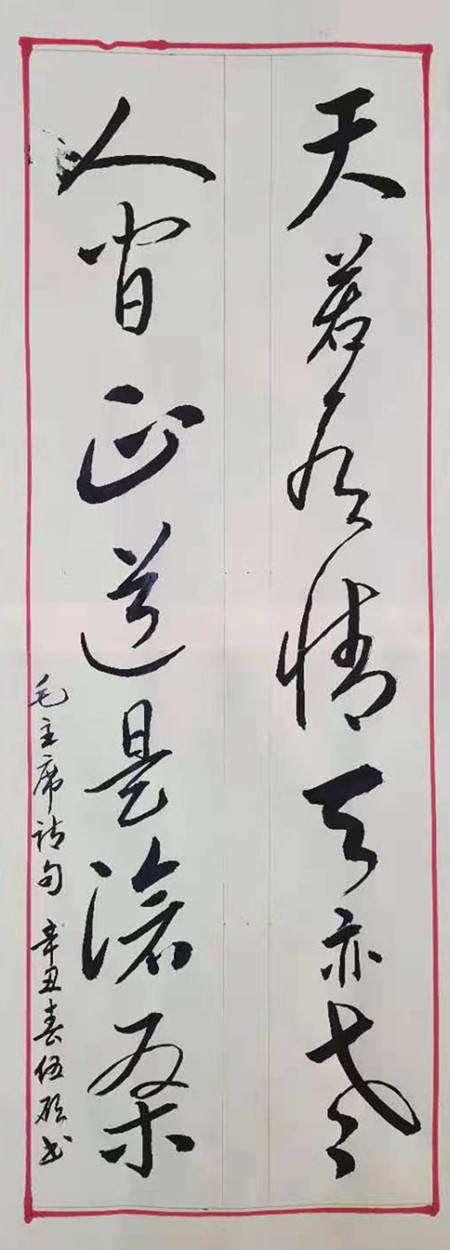 天若有情天亦老
人间正道是滄桑
毛主席诗句 辛丑春伍